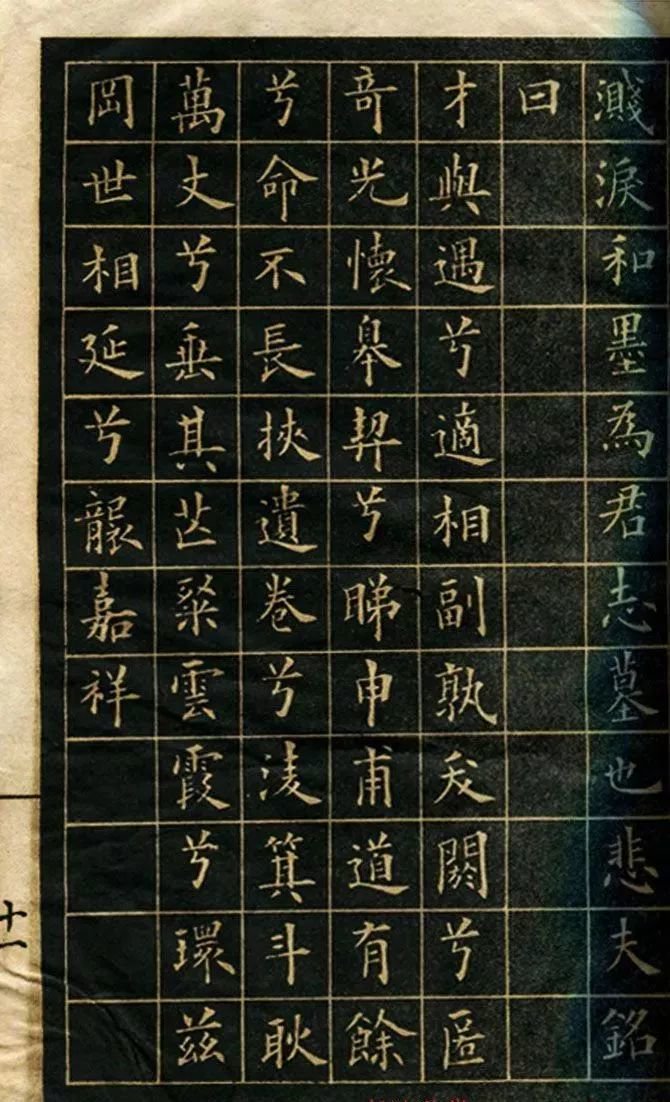 濺淚和墨為君志墓也悲夫銘
曰
才與遇兮適相副孰夭閼兮匿
竒光懷皋契兮睇申甫道有餘
兮命不長挾遺卷兮淩箕斗耿
萬丈兮垂其芒粲雲霞兮環茲
岡世相延兮襲嘉祥
十一